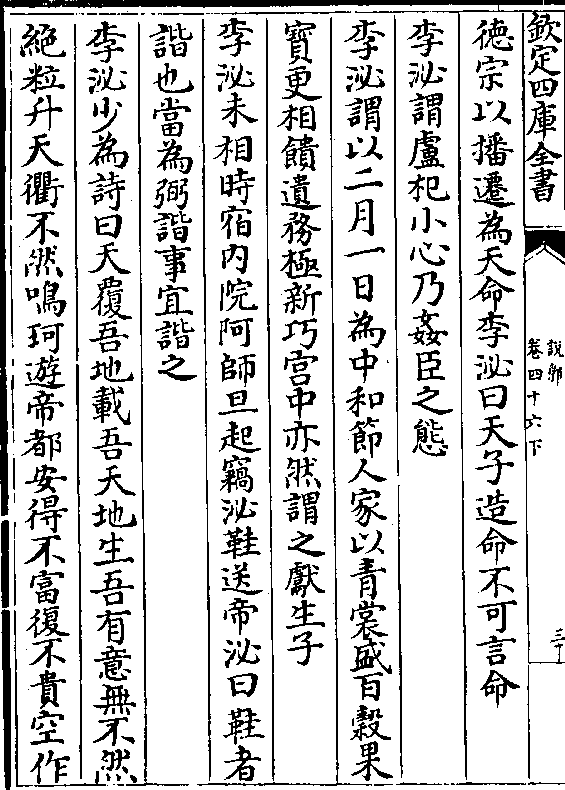 欽定四庫全書
說郛
卷四十六下
三十
德宗以播遷為天命李泌曰天子造命不可言命
李泌謂盧杞小心乃姦臣之態
李泌謂以二月一日為中和節人家以青裳盛百穀果
寶更相饋遺務極新巧宫中亦然謂之獻生子
李泌未相時宿内院阿師旦起竊泌鞋送帝泌曰鞋者
諧也當為弼諧事宜諧之
李泌少為詩曰天覆吾地載吾天地生吾有意無不然
絶粒升天衢不然鳴珂遊帝都安得不富復不貴空作